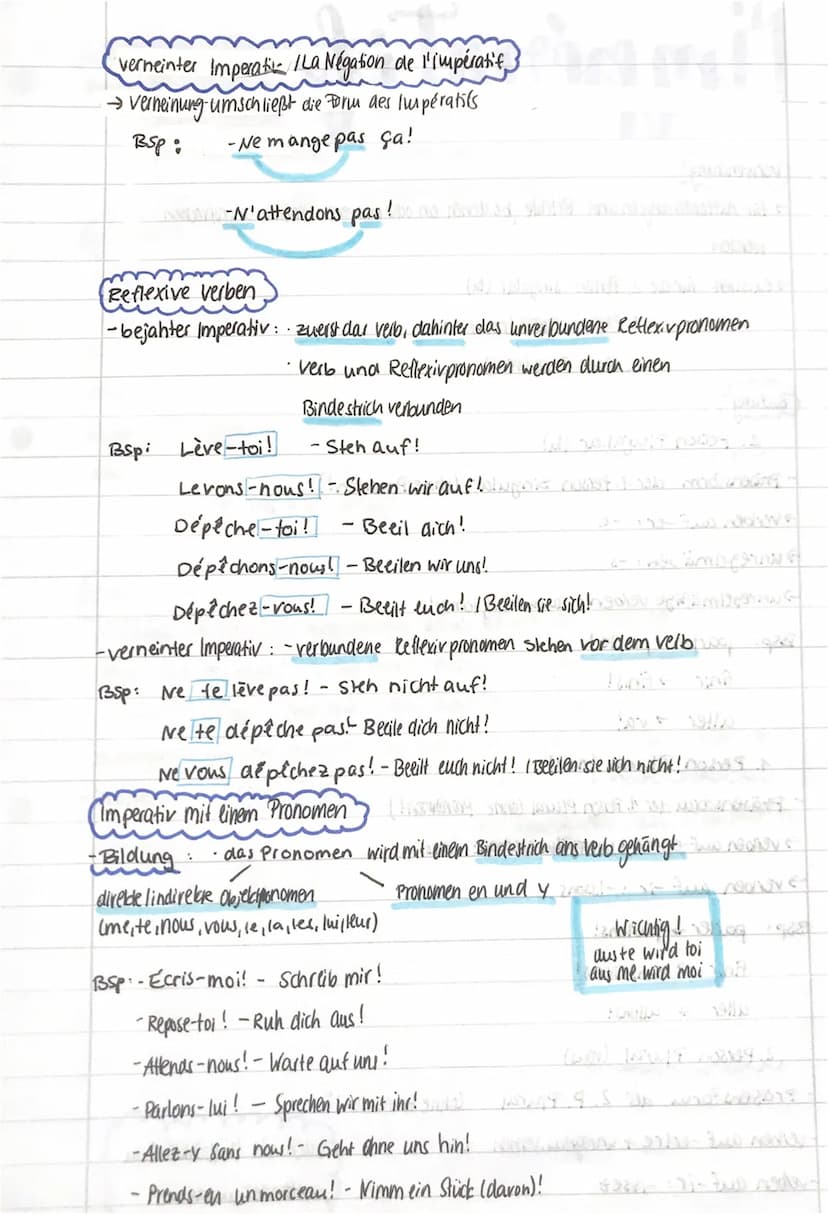 verneinter Imperativ / La Négation de l'impératif
→ Verneinung umschließt die Form des Imperatifs
Bsp: - Ne mange pas ça!
- N'attendons pas!
Reflexive Verben
- bejahter Imperativ: · zuerst das Verb, dahinter das unverbundene Reflexivpronomen
· Verb und Reflexivpronomen werden durch einen
Bindestrich verbunden
Bsp: Lève-toi! - Steh auf!
Levons-nous! - Stehen wir auf!
Dépêche-toi! - Beeil dich!
Dépêchons-nous! - Beeilen wir uns!
Dépêchez-vous! - Beeilt euch! / Beeilen sie sich!
- verneinter Imperativ: - verbundene Reflexivpronomen stehen vor dem Verb
Bsp: Ne te lève pas! - Steh nicht auf!
Ne te dépêche pas! - Beeile dich nicht!
Ne vous dépêchez pas! - Beeilt euch nicht! / Beeilen sie sich nicht!
Imperativ mit einem Pronomen
- Bildung: · das Pronomen wird mit einem Bindestrich ans Verb gehängt
direkte/indirekte Objektpronomen Pronomen en und y
(me, te, nous, vous, le, la, les, lui, leur)
Wichtig!
aus te wird toi
aus me wird moi
Bsp: - Écris-moi! - Schreib mir!
- Repose-toi! - Ruh dich aus!
- Attends-nous! - Warte auf uns!
- Parlons-lui! - Sprechen wir mit ihr!
- Allez-y sans nous! - Geht ohne uns hin!
- Prends-en un morceau! - Nimm ein Stück (davon)!